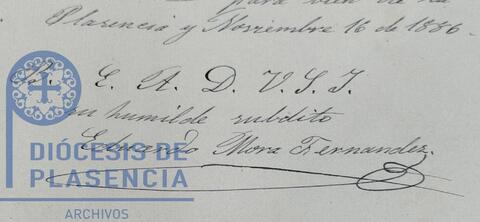 para bien de la
Plasencia y Noviembre 16 de 1886.
E. A. D. V. S. I.
su humilde subdito
Eduardo Mora Fernandez.
DIÓCESIS DE
PLASENCIA
ARCHIVOS